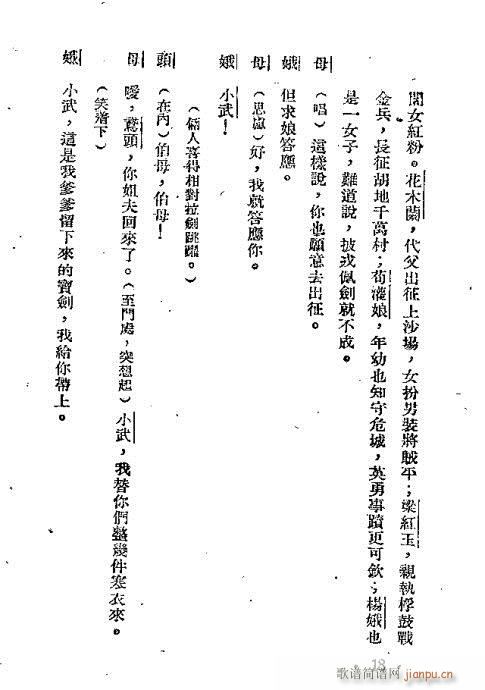 閨女紅粉。花木蘭，代父出征上沙場，女扮男裝將賊平；梁紅玉，親執桴鼓戰
金兵，長征胡地千萬村；荀灌娘，年幼也知守危城，英勇事蹟更可欽；楊娥也
是一女子，難道說，披戎佩劍就不成。
母 （唱）這樣說，你也願意去出征。
娥 但求娘答應。
母 （思嵐）好，我就答應你。
娥 小武！
（倆人喜得相對拉劍跳躍。）
頭 （在內）伯母，伯母！
母 噯，鴉頭，你姐夫回來了。（至門處，突想起）小武，我替你們整幾件寒衣來。
（笑着下）
娥 小武，這是我爹爹留下來的寶劍，我給你帶上。
18
歌谱简谱网
jianpu.cn